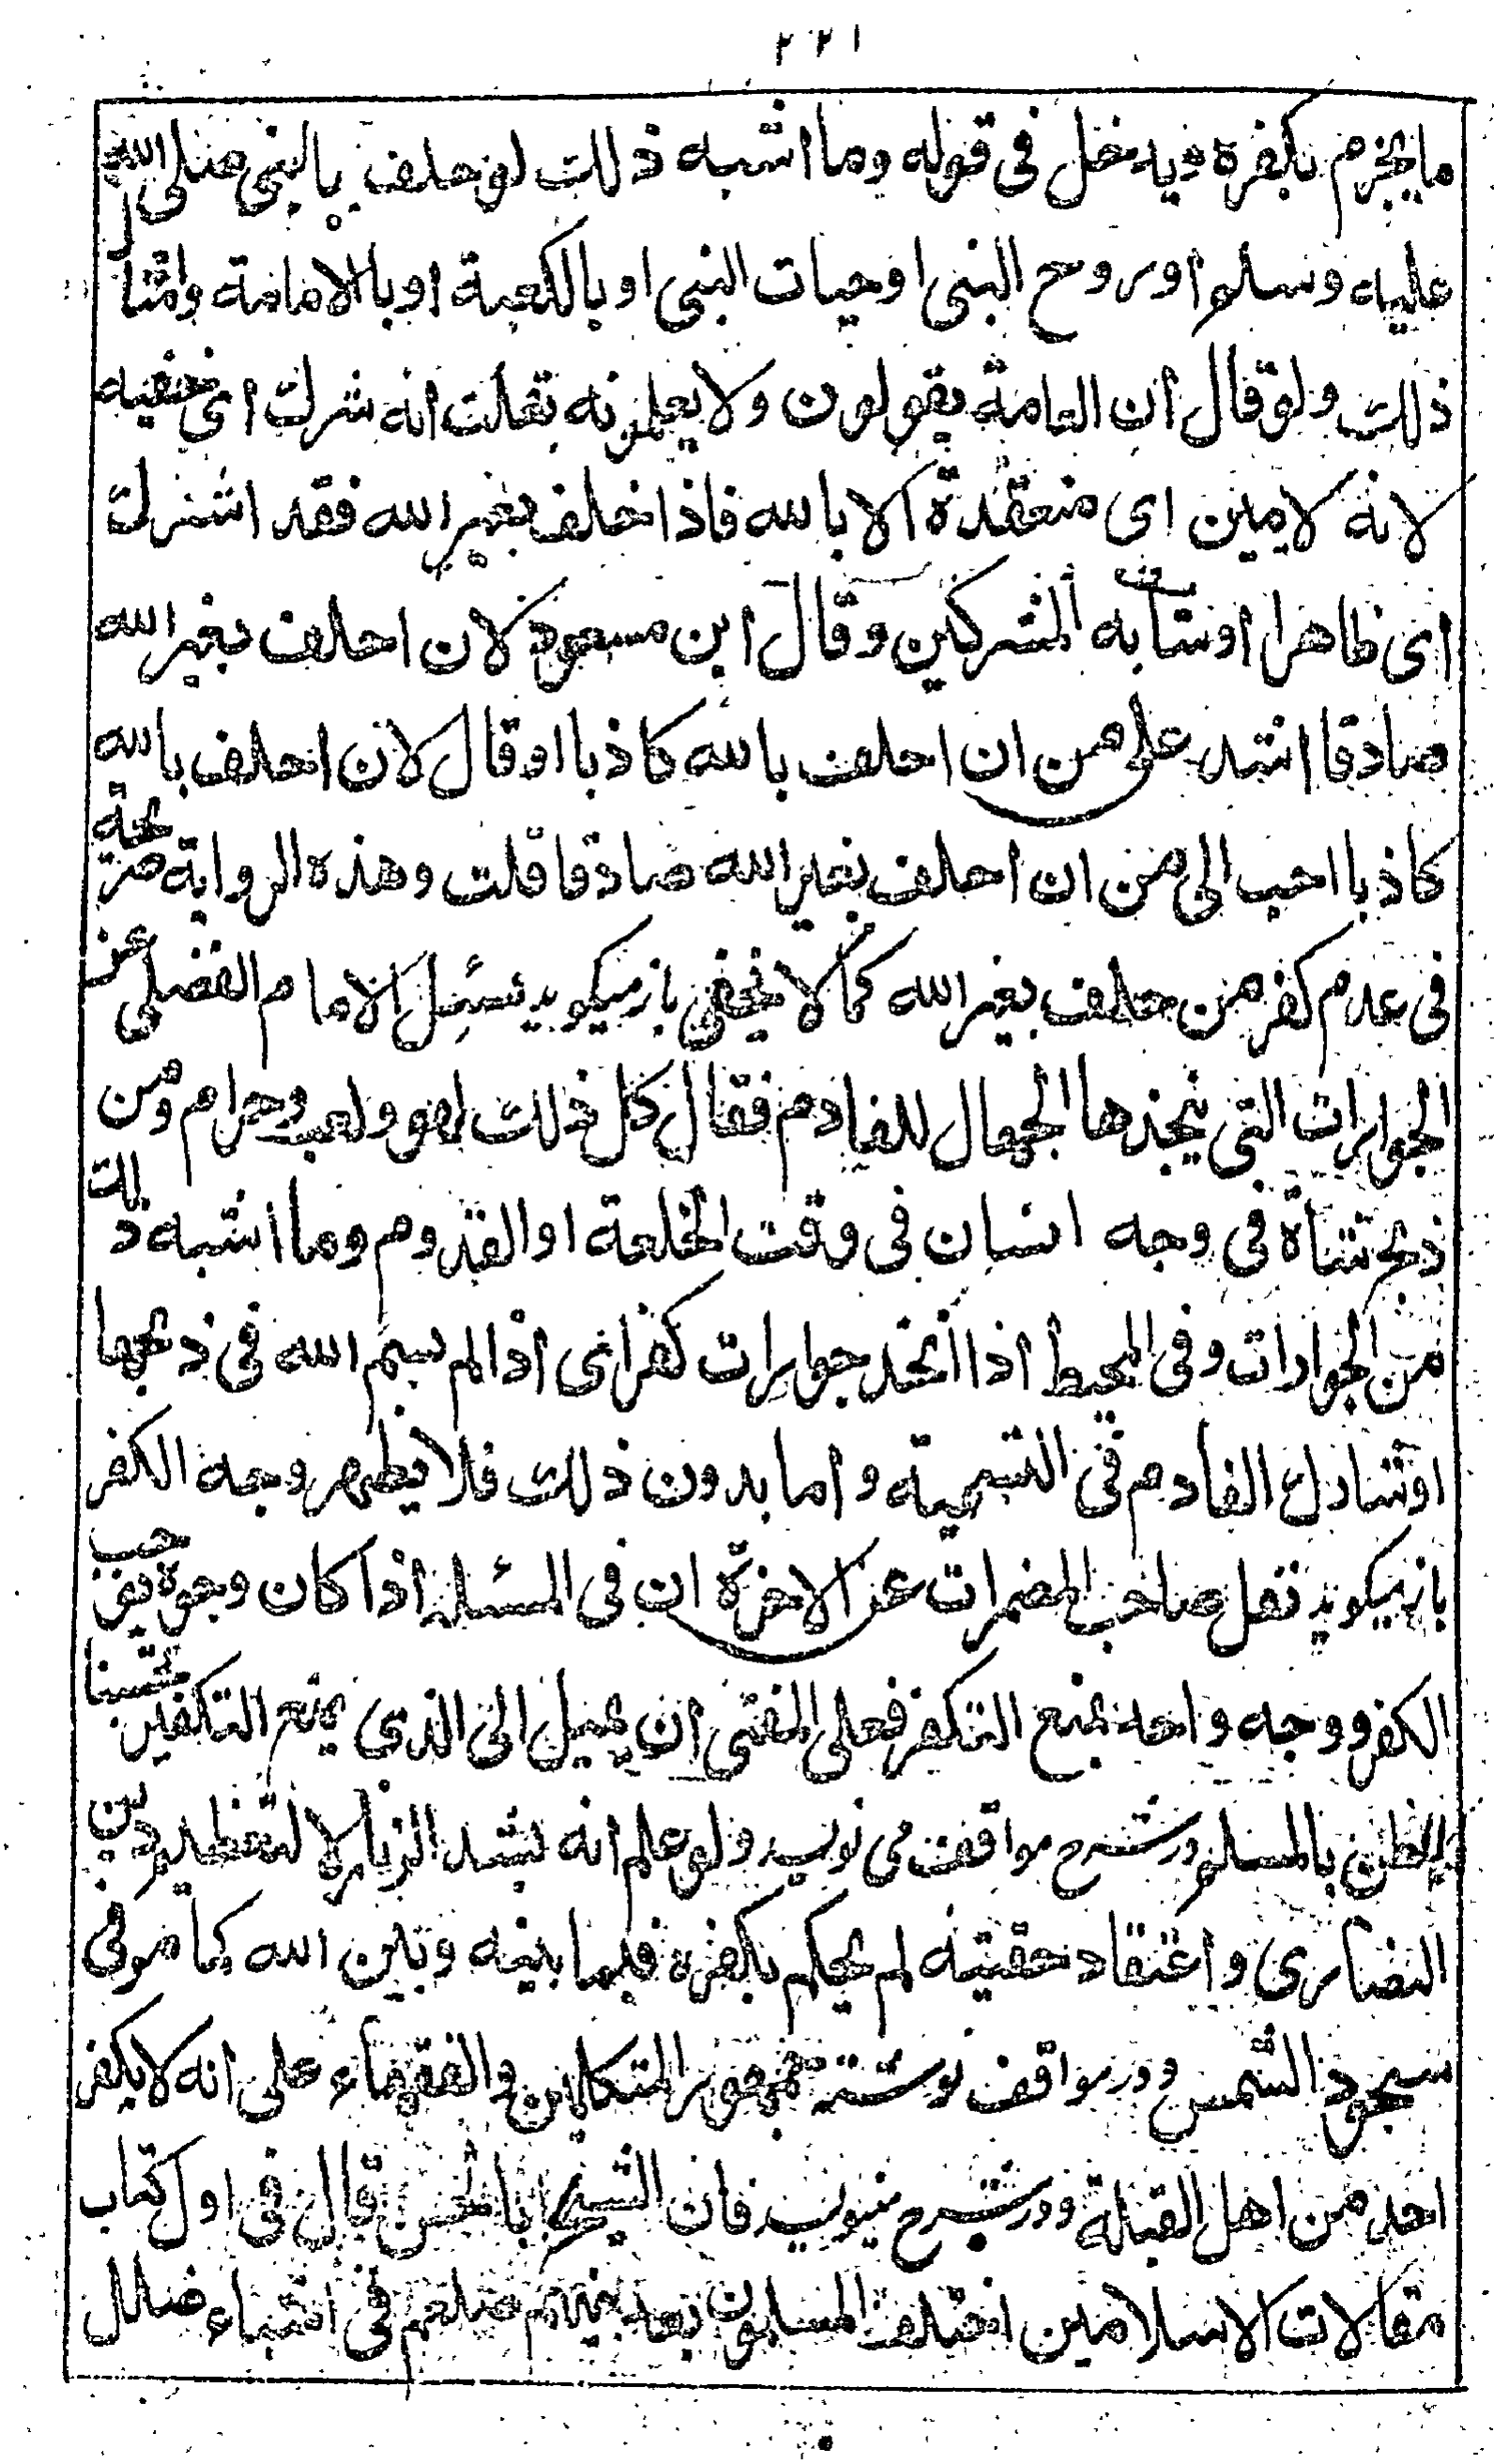 ٢٢١
ما يجزم بكفره ويدخل فى قوله وما اشبه ذلك لو حلف بالنبى صلى الله
عليه وسلم او روح النبى او حيات النبى او بالكعبة او بالامامة وامثال
ذلك ولو قال ان العامة يقولون ولا يعلمونه تقلت انه شرك اى خفيه
لانه لا يمين اى منعقدة الا بالله فاذا حلف بغير الله فقد اشرك
اى ظاهرا او شابه المشركين وقال ابن مسعود لان احلف بغير الله
صادقا اشد على من ان احلف بالله كاذبا او قال لان احلف بالله
كاذبا احب الى من ان احلف بغير الله صادقا قلت وهذه الرواية صريحة
فى عدم كفر من حلف بغير الله كما لا يخفى باز ميكويد سئل الامام الفضلى عن
الجوازات التى يتخذها الجهال للقادم فقال كل ذلك لهو ولعب وحرام ومن
ذبح شاة فى وجه انسان فى وقت الخلعة او القدوم وما اشبه ذلك
من الجوازات وفى المحيط اذا اتخذ جوازات كفر اى اذا لم يسم الله فى ذبحها
او شارك القادم فى التسمية واما بدون ذلك فلا يظهر وجه الكفر
باز ميكويد نقل صاحب المضمرات عن الاخرة ان فى المسئله اذا كان وجوه يوجب
الكفر ووجه واحد يمنع التكفر فعلى المفتى ان يميل الى الذى يمنع التكفير تحسينا
للظن بالمسلم در شرح مواقف مى نويسد ولو علم انه يشد الزنار لا لتعظيم دين
النصارى واعتقاد حقيته لم يحكم بكفره فيما بينه وبين الله كما مر فى
سجود الشمس و در مواقف نوشته جمهور المتكلمين والفقهاء على انه لا يكفر
احد من اهل القبلة و در شرح مينويسد فان الشيخ ابا الحسن قال فى اول كتاب
مقالات الاسلامين اختلف المسلمون بعد نبيهم صلعم فى اشياء ضلل